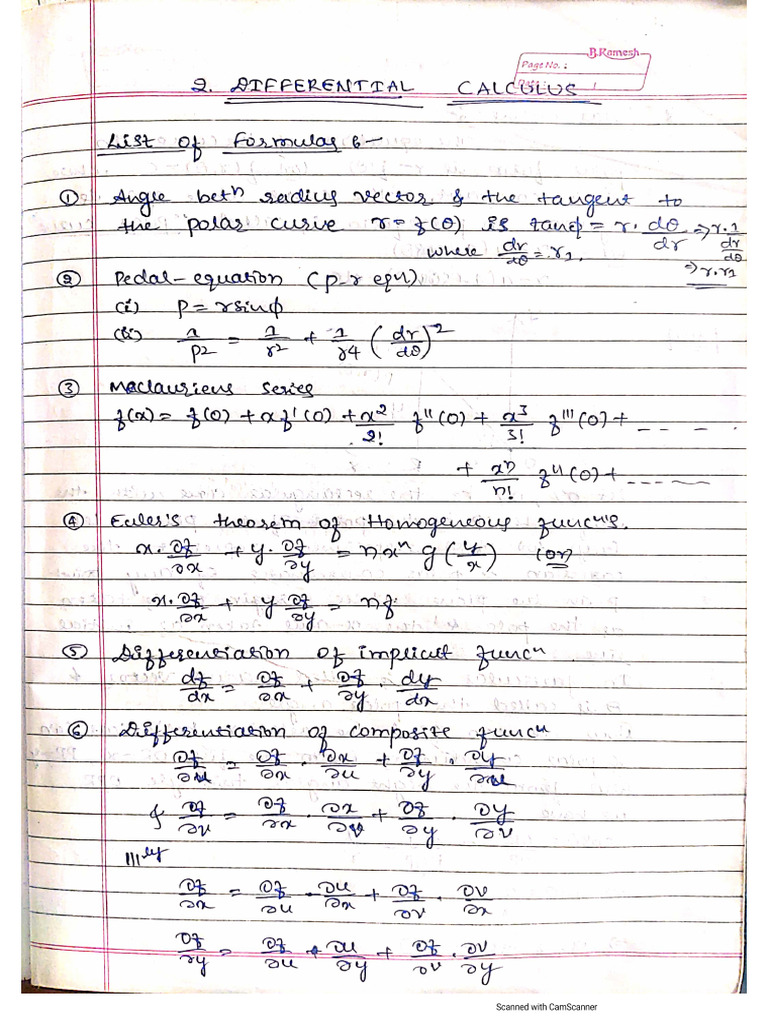 B.Ramesh
Page No. :
Date :
2. DIFFERENTIAL CALCULUS
List of Formulas :-
① Angle betⁿ radius vector & the tangent to
the polar curve r = f(θ) is tanϕ = r. dθ/dr ⇒ r. 1/(dr/dθ)
where dr/dθ = r₁. ⇒ r. r₁
② Pedal-equation (p-r eqn)
(i) P = r sinϕ
(ii) 1/p2 = 1/r2 + 1/r4 (dr/dθ)^2
③ Maclauriens series
f(x) = f(0) + x f'(0) + x^2/2! f''(0) + x^3/3! f'''(0) + _ _ _ .
+ xⁿ/n! fⁿ(0) + _ _ _ _
④ Euler's theorem of Homogeneous funcⁿ's.
x. ∂f/∂x + y. ∂f/∂y = n xⁿ g (y/x) (or)
x. ∂f/∂x + y ∂f/∂y = nf.
⑤ Differentiation of implicit funcⁿ.
df/dx = ∂f/∂x + ∂f/∂y . dy/dx
⑥ Differentiation of composite funcⁿ
∂f/∂u = ∂f/∂x . ∂x/∂u + ∂f/∂y . ∂y/∂u
& ∂f/∂v = ∂f/∂x . ∂x/∂v + ∂f/∂y . ∂y/∂v
|||ly
∂f/∂x = ∂f/∂u . ∂u/∂x + ∂f/∂v . ∂v/∂x
∂f/∂y = ∂f/∂u . ∂u/∂y + ∂f/∂v . ∂v/∂y
Scanned with CamScanner